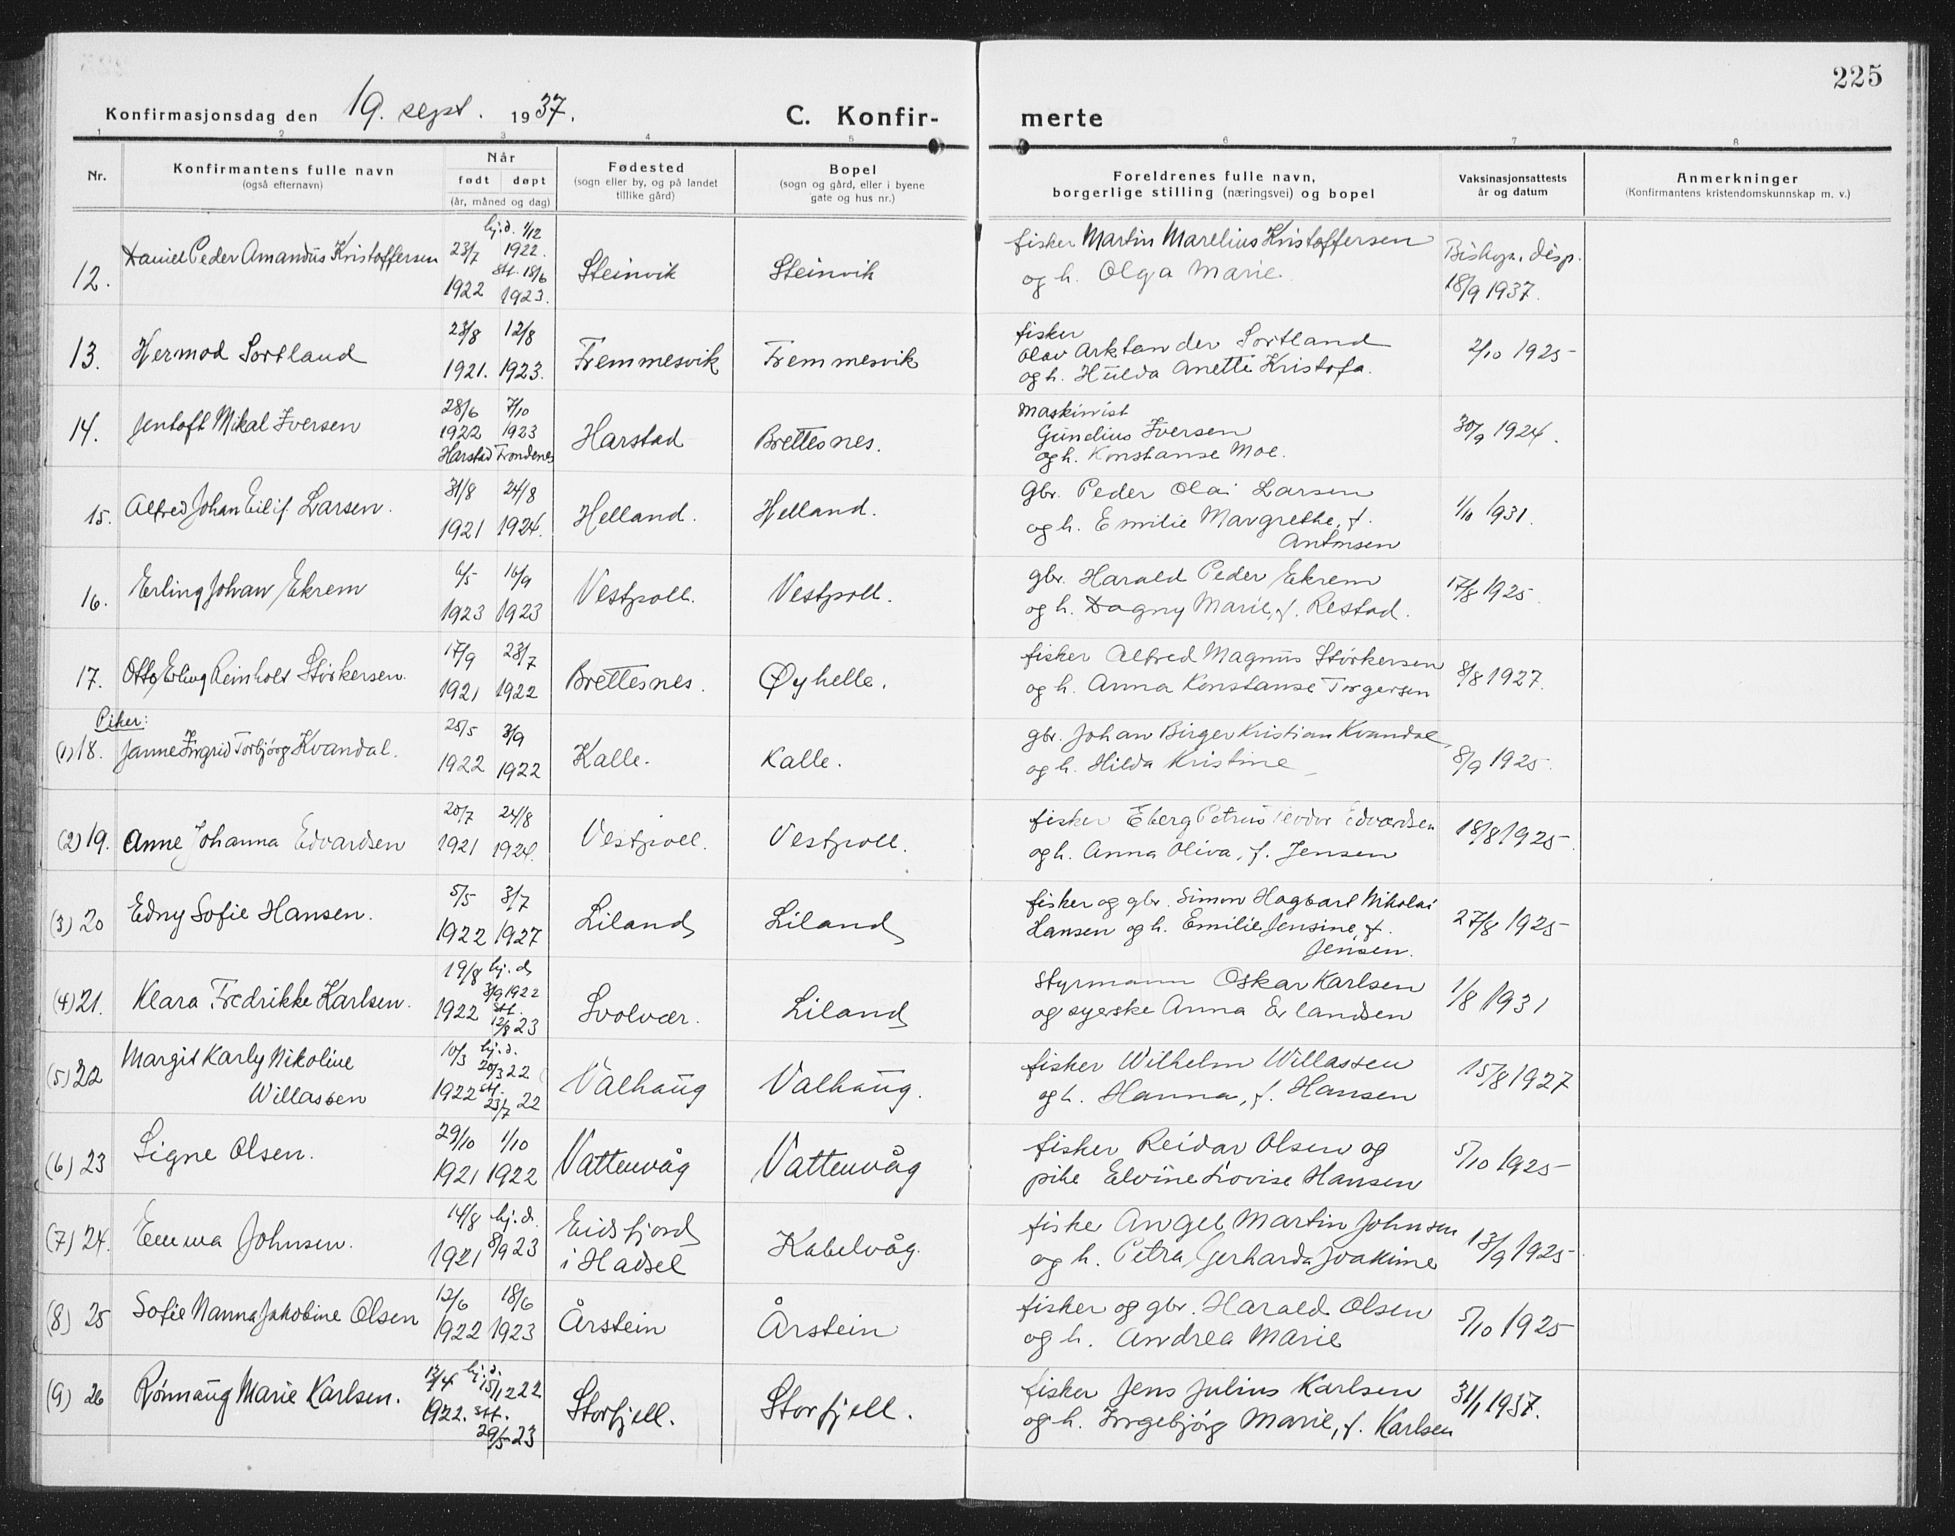 225
Konfirmasjonsdag den 19. sept. 1937.
C. Konfir-
merte
1 2 3 4 5 6 7 8
Nr.
Konfirmantens fulle navn
(også efternavn)
Når
født døpt
(år, måned og dag)
Fødested
(sogn eller by, og på landet
tillike gård)
Bopel
(sogn og gård, eller i byene
gate og hus nr.)
Foreldrenes fulle navn,
borgerlige stilling (næringsvei) og bopel
Vaksinasjonsattests
år og datum
Anmerkninger
(Konfirmantens kristendomskunnskap m. v.)
12. Daniel Peder Amandus Kristoffersen
23/7 1922
hj.d. 1/12 1922. stf. 18/6 1923.
Steinvik
Steinvik
fisker Martin Marelius Kristoffersen
og h. Olga Marie.
Biskop. disp.
18/9 1937.
13. Hermod Sortland
23/8 1921.
12/8 1923.
Fremmesvik
Fremmesvik
fisker
Olav Arktander Sortland
og h. Hulda Anette Kristofa.
2/10 1925
14. Jentoft Mikal Iversen
28/6 1922 Harstad
7/10 1923 Trondenes
Harstad
Brettesnes.
Maskinist
Gundius Iversen
og h. Konstanse Moe.
30/9 1924.
15. Alfred Johan Eilif Larsen.
31/8 1921
24/8 1924.
Helland.
Helland.
Gbr. Peder Olai Larsen
og h. Emilie Margrethe, f.
Antonsen
1/10 1931.
16. Erling Johan Ekrem
6/5 1923
16/9 1923
Vestpoll.
Vestpoll.
gbr. Harald Peder Ekrem
og h. Dagny Marie, f. Restad.
17/8 1925.
17. Otto Erling Reinholt Størkersen.
17/9 1921
23/7 1922
Brettesnes.
Øyhelle.
fisker Alfred Magnus Størkersen
og h. Anna Konstanse Torgersen
8/8 1927.
Piker:
(1) 18. Janne Ingrid Torbjørg Kvandal.
25/5 1922
3/9 1922
Kalle.
Kalle.
gbr. Johan Birger Kristian Kvandal,
og h. Hilda Kristine
8/9 1925.
(2) 19. Anne Johanna Edvardsen
20/7 1921
24/8 1924.
Vestpoll.
Vestpoll.
fisker Eberg Petrus Edvardsen
og h. Anna Oliva, f. Jensen
18/8 1925.
(3) 20 Edny Sofie Hansen.
5/5 1922
3/7 1927
Liland
Liland
fisker og gbr. Simon Hagbart Nikolai
Hansen og h. Emilie Jensine, f.
Jensen.
27/8 1925
(4) 21. Klara Fredrikke Karlsen.
19/8 1922
hj.d. 3/9 1922 stf. 12/8 23
Svolvær.
Liland
Styrmann Oskar Karlsen
og syerske Anna Erlandsen
1/8 1931
(5) 22 Margit Karly Nikoline
Willassen
10/3 1922
hj.d. 20/3 22 stf. 23/7 22
Valhaug
Valhaug.
fisker Wilhelm Willassen
og h. Hanna, f. Hansen
15/8 1927
(6) 23 Signe Olsen.
29/10 1921
1/10 1922
Vattenvåg
Vattenvåg
fisker Reidar Olsen og
pike Elvine Lovise Hansen
5/10 1925
(7) 24. Emma Johnsen.
14/8 1921
hj.d. 8/9 23
Eidsfjord
i Hadsel
Kabelvåg.
fisker Angel Martin Johnsen
og h. Petra Gerharda Joakime
13/9 1925
(8) 25 Sofie Nanna Jakobine Olsen
12/6 1922
18/6 1923
Årstein
Årstein
fisker og gbr. Harald Olsen
og h. Andrea Marie
5/10 1925
(9) 26 Rønnaug Marie Karlsen.
1922.
hj.d. 15/12 22 stf. 29/5 23
Storfjell.
Storfjell.
fisker Jens Julius Karlsen
og h. Ingebjørg Marie, f. Karlsen
31/1 1937.